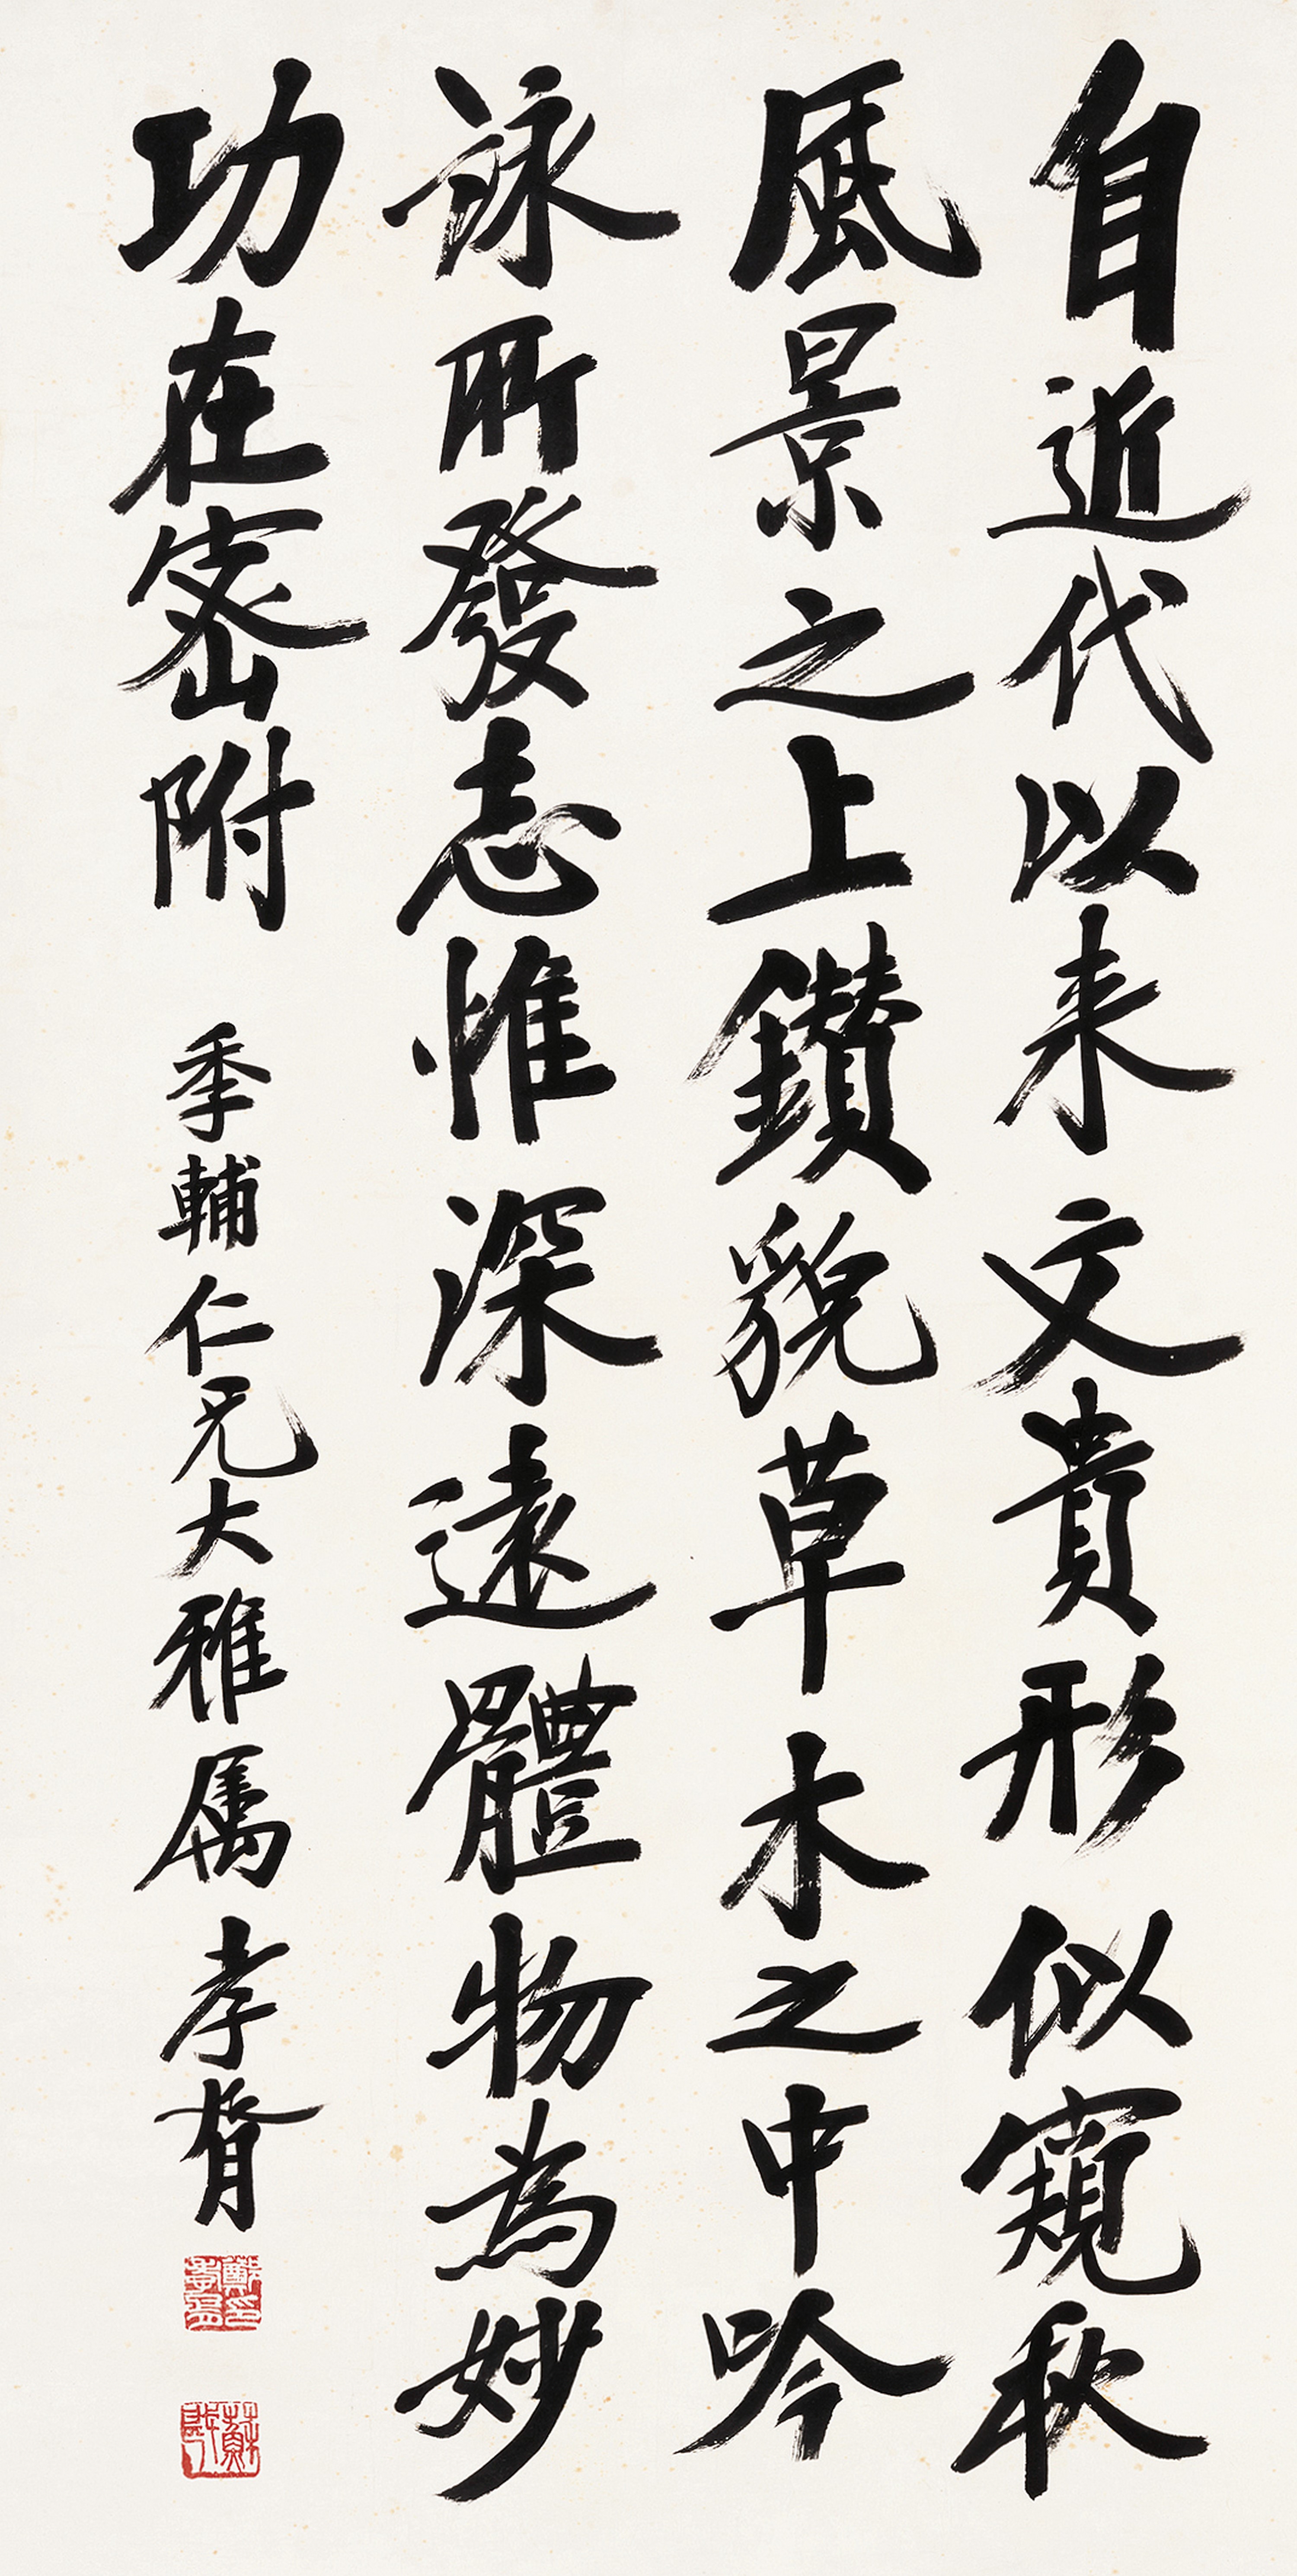 自近代以来文貴形似窺秋
風景之上鑽貌草木之中吟
詠所發志惟深遠體物為妙
功在密附
季輔仁兄大雅属 孝胥
鄭印孝胥
蘇戡